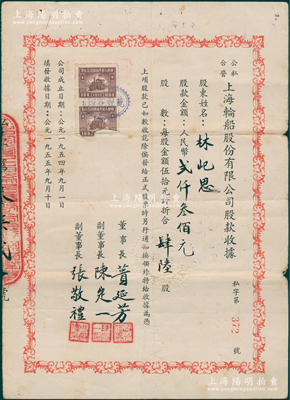 上海陽明拍賣
公私合營上海輪船股份有限公司股款收據
私字第 373 號
股東姓名：林屺思
股款金額：人民幣貳仟叁佰元
股數：每股金額伍拾元折合肆陸股
上項股款已如數收訖除俟發給正式股票時另行通知換領外特給收據為憑
董事長
副董事長 陳
副董事長 張敬禮
公司成立日期：公元一九五四年九月一日
填發收據日期：公元一九五五年九月十日
上海陽明拍賣